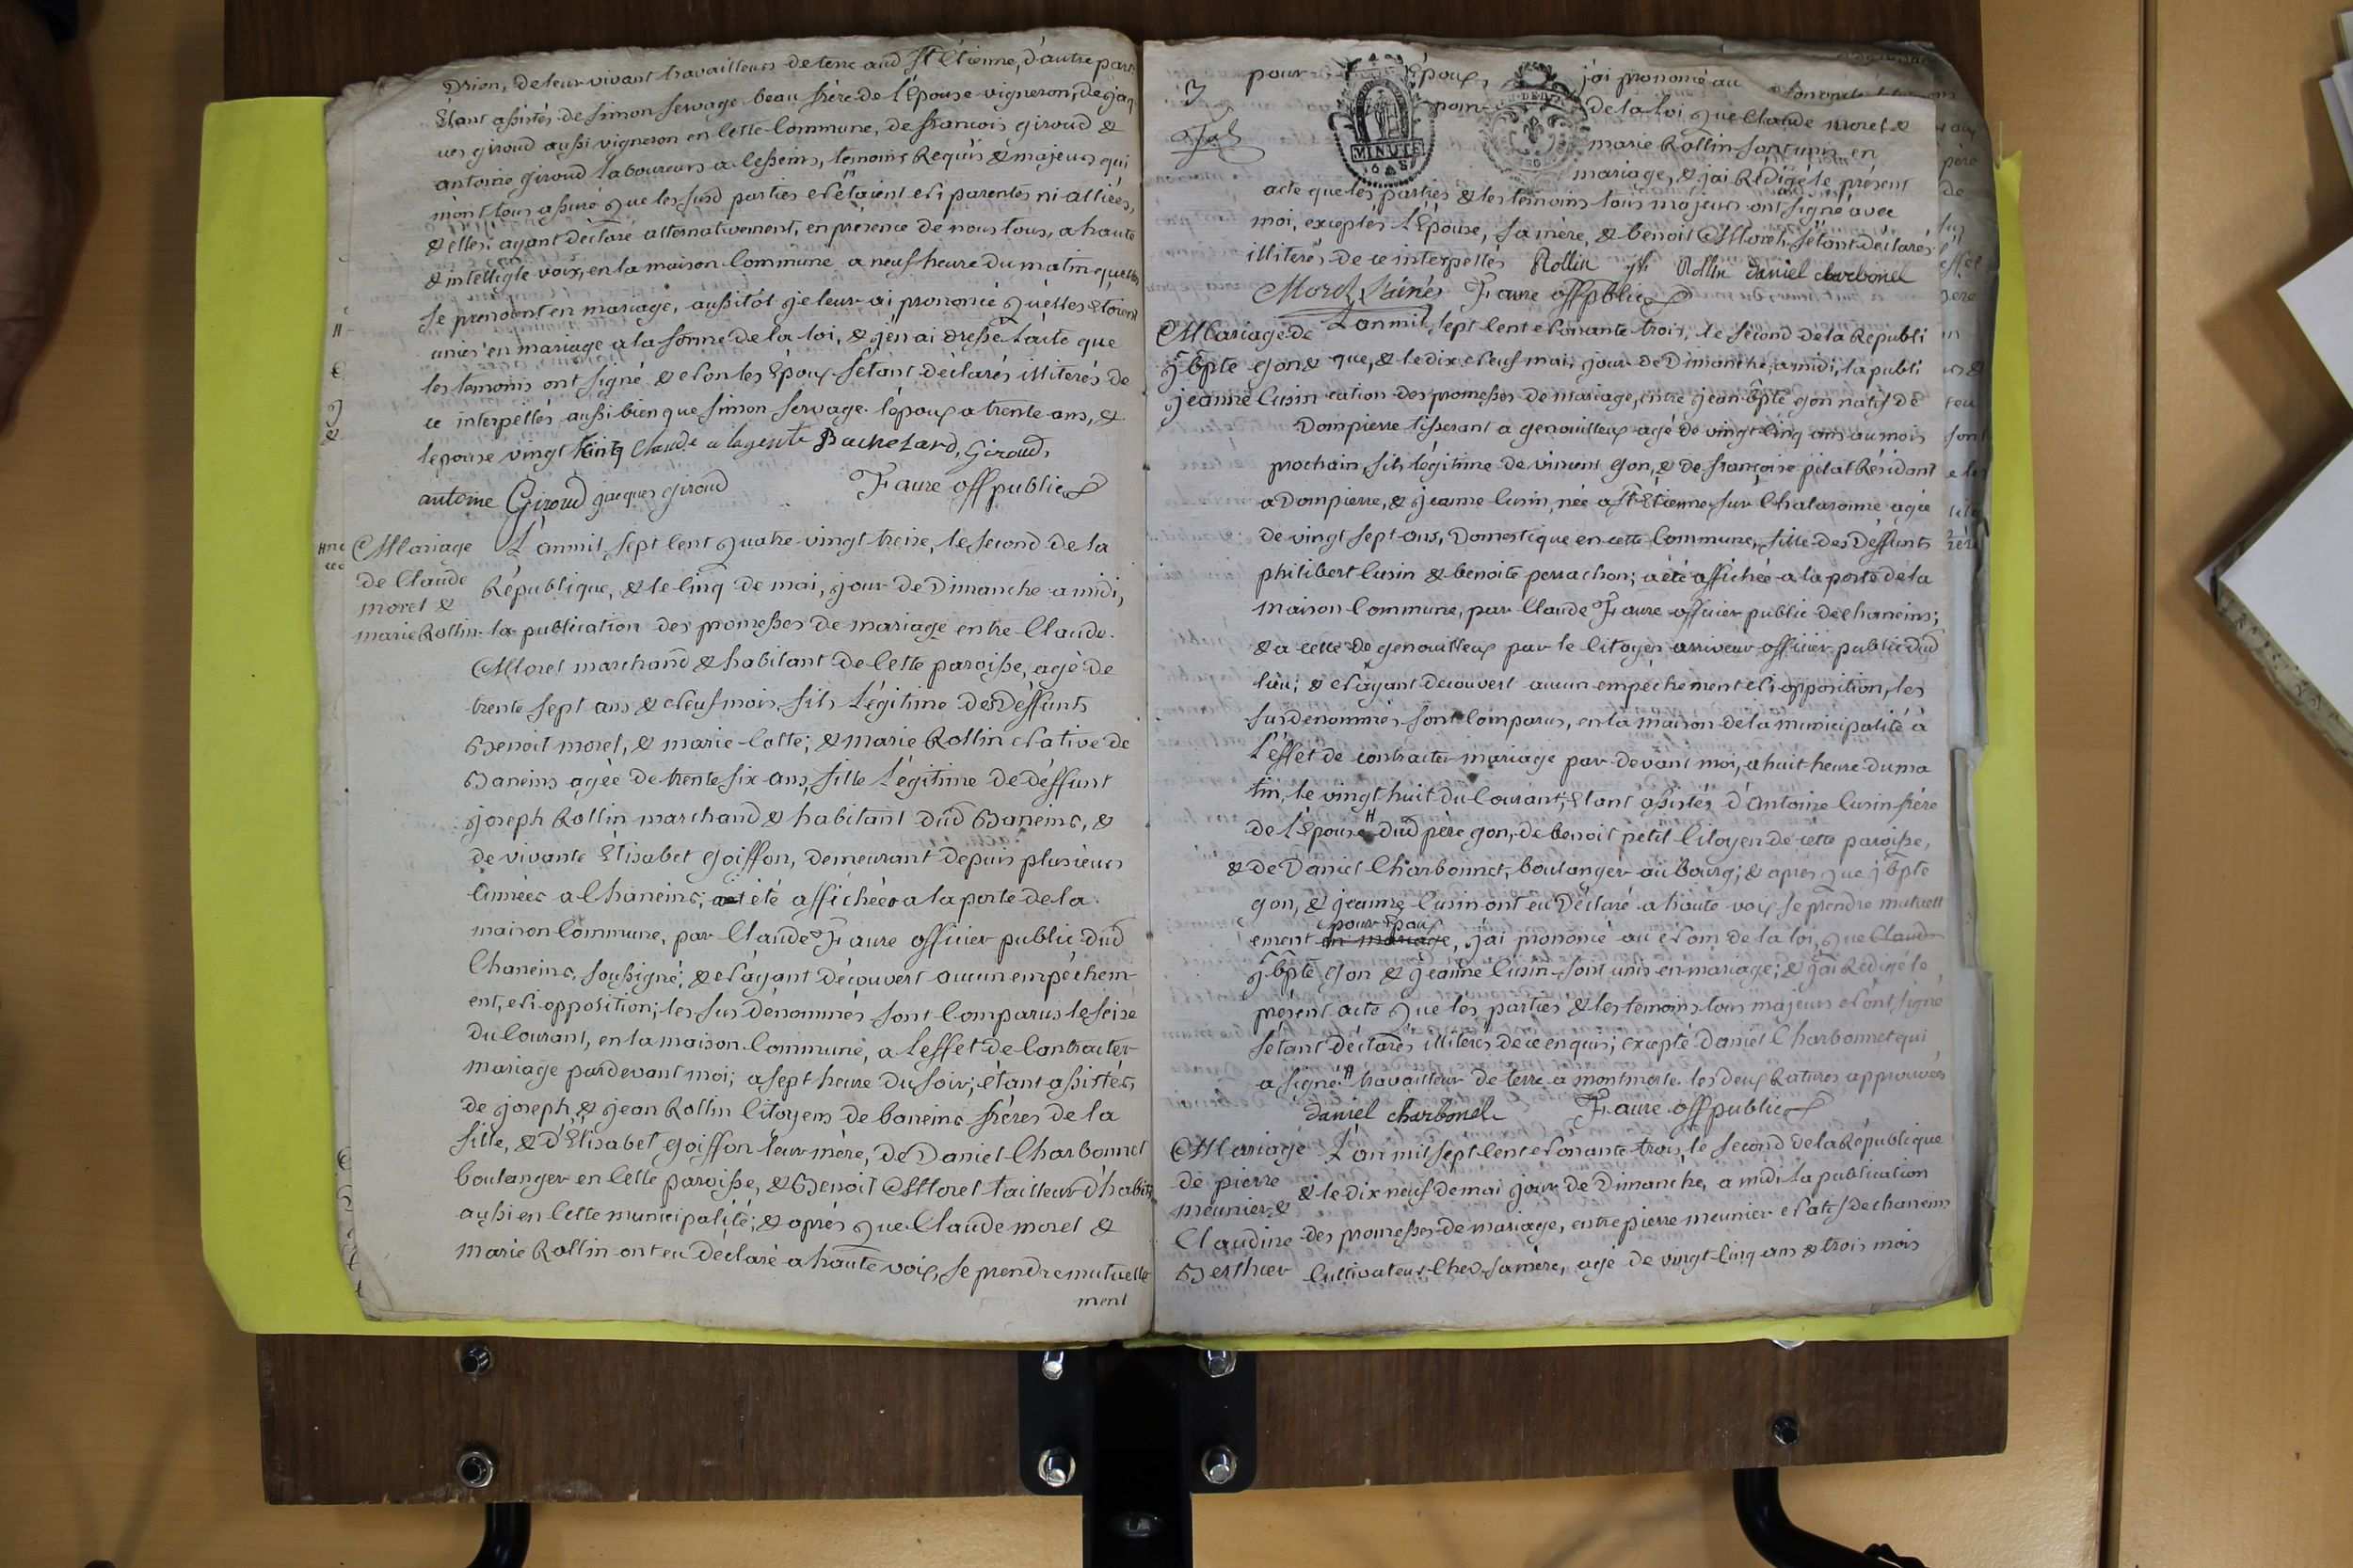 Drion, de leur vivant travailleurs de terre aud St Étienne, d'autre part
Étant assistés de simon servage beau frère de l'Épouse vigneron, de jacq
ues giroud aussi vigneron en cette Commune, de francois giroud &
antoine giroud laboureurs a lesseins, temoins Requis & majeurs qui
m'ont tous assuré que les susd parties n'étaient ni parentes ni alliées,
& elles ayant déclaré alternativement, en présence de nous tous, a haute
& intelligle voix, en la maison Commune a neuf heure du matin qu'elles
se prenoent en mariage, aussitôt je leur ai prononcé qu'elles étoient
unies en mariage a la forme de la loi, & j'en ai dressé l'acte que
les temoins ont signé & non les Époux s'étant déclarés illiterés de
ce interpellés aussi bien que simon servage. l'époux a trente ans, &
lepouse vingt cinq Bachelard, Giroud,
antoine Giroud jacques giroud Faure off public
Mariage
de Claude
morel &
marie Rollin
L'an mil sept cent quatre-vingt treise, le second de la
République, & le cinq de mai, jour de Dimanche a midi,
la publication des promesses de mariage entre Claude
Morel marchand & habitant de Cette paroisse, agé de
trente sept ans & neuf mois, fils Légitime des Déffunts
Benoit morel, & marie Cotte; & marie Rollin native de
Baneins agée de trente six ans, fille Légitime de déffunt
joseph Rollin marchand & habitant dud Baneins, &
de vivante Élisabet goiffon, demeurant depuis plusieurs
années a Chaneins; a été affichées a la porte de la
maison Commune, par Claude Faure officier public dud
Chaneins, soussigné; & n'ayant découvert aucun empêchem
ent, ni opposition; les sus dénommés sont Comparus le seise
du Courant, en la maison Commune, a L'effet de Contracter
mariage pardevant moi; a sept heure du soir; étant assistés
de joseph & jean Rollin Citoyens de baneins frères de la
fille, & d'Élisabet goiffon leur mère, de Daniel Charbonnel
boulanger en Cette paroisse, & Benoit Morel tailleur d'habits
aussi en Cette municipalité; & après que Claude morel &
Marie Rollin ont eu Déclaré a haute voix, se prendre mutuelle
ment
3
pour Époux, j'ai prononcé au
nom de la loi que Claude morel &
MINUTE
marie Rollin sont unis en
mariage, & j'ai Rédigé le présent
acte que les parties & les temoins tous majeurs ont signé avec
moi, exceptés l'Épouse, sa mère, & benoit Morel, s'étant déclarés
illiterés de ce interpellés Rollin Rollin daniel charbonel
Morel l'ainé Faure off public
Mariage de
j bpte gon &
jeanne Cusin
L'an mil sept cent nonante trois, le second de la Républi
que, & le dix neuf mai, jour de Dimanche, a midi, la publi
cation des promesses de mariage, entre jean bpte gon natif de
Dompierre tisserant a genouilleux agé de vingt cinq ans au mois
prochain, fils légitime de vincent gon, & de françoise pilat Résidant
a Dompierre, & jeanne Cusin, née a St Étienne sur Chalaronne agée
de vingt sept ans, Domestique en cette Commune, fille des Déffunts
philibert Cusin & benoite perrachon; a été affichée a la porte de la
maison Commune, par Claude Faure officier public de Chaneins;
& a celle de genouilleux par le Citoyen arriveur officier public dud
lieu; & n'ayant decouvert aucun empêchement ni opposition, les
sus dénommés sont Comparus, en la maison de la municipalité à
l'effet de contracter mariage par devant moi, a huit heure du ma
tin, le vingt huit du Courant; Étant assistés d'Antoine Cusin frère
de l'Épouse # dud père gon, de benoit petit Citoyen de cette paroisse,
& de Daniel Charbonnel, boulanger au bourg; & après que j bpte
gon, & jeanne Cusin ont eu Déclaré a haute voix se prendre mutuell
pour Époux
ement en mariage, j'ai prononcé au nom de la loi, que Claude
j bpte gon & jeanne Cusin sont unis en mariage; & j'ai Redigé le
présent acte que les parties & les temoins tous majeurs n'ont signé
s'étant déclarés illiterés de ce enquis; excepté Daniel Charbonnel qui
a signé. # travailleur de terre a montmerle. les deux Ratures approuvées
daniel charbonel Faure off public
Mariage
de pierre
meunier &
Claudine
Berthier
L'an mil sept cent nonante trois, le second de la République
& le dix neuf de mai jour de Dimanche, a midi la publication
des promesses de mariage, entre pierre meunier natif de chaneins
Cultivateur Chez sa mère, agé de vingt-Cinq ans & trois mois